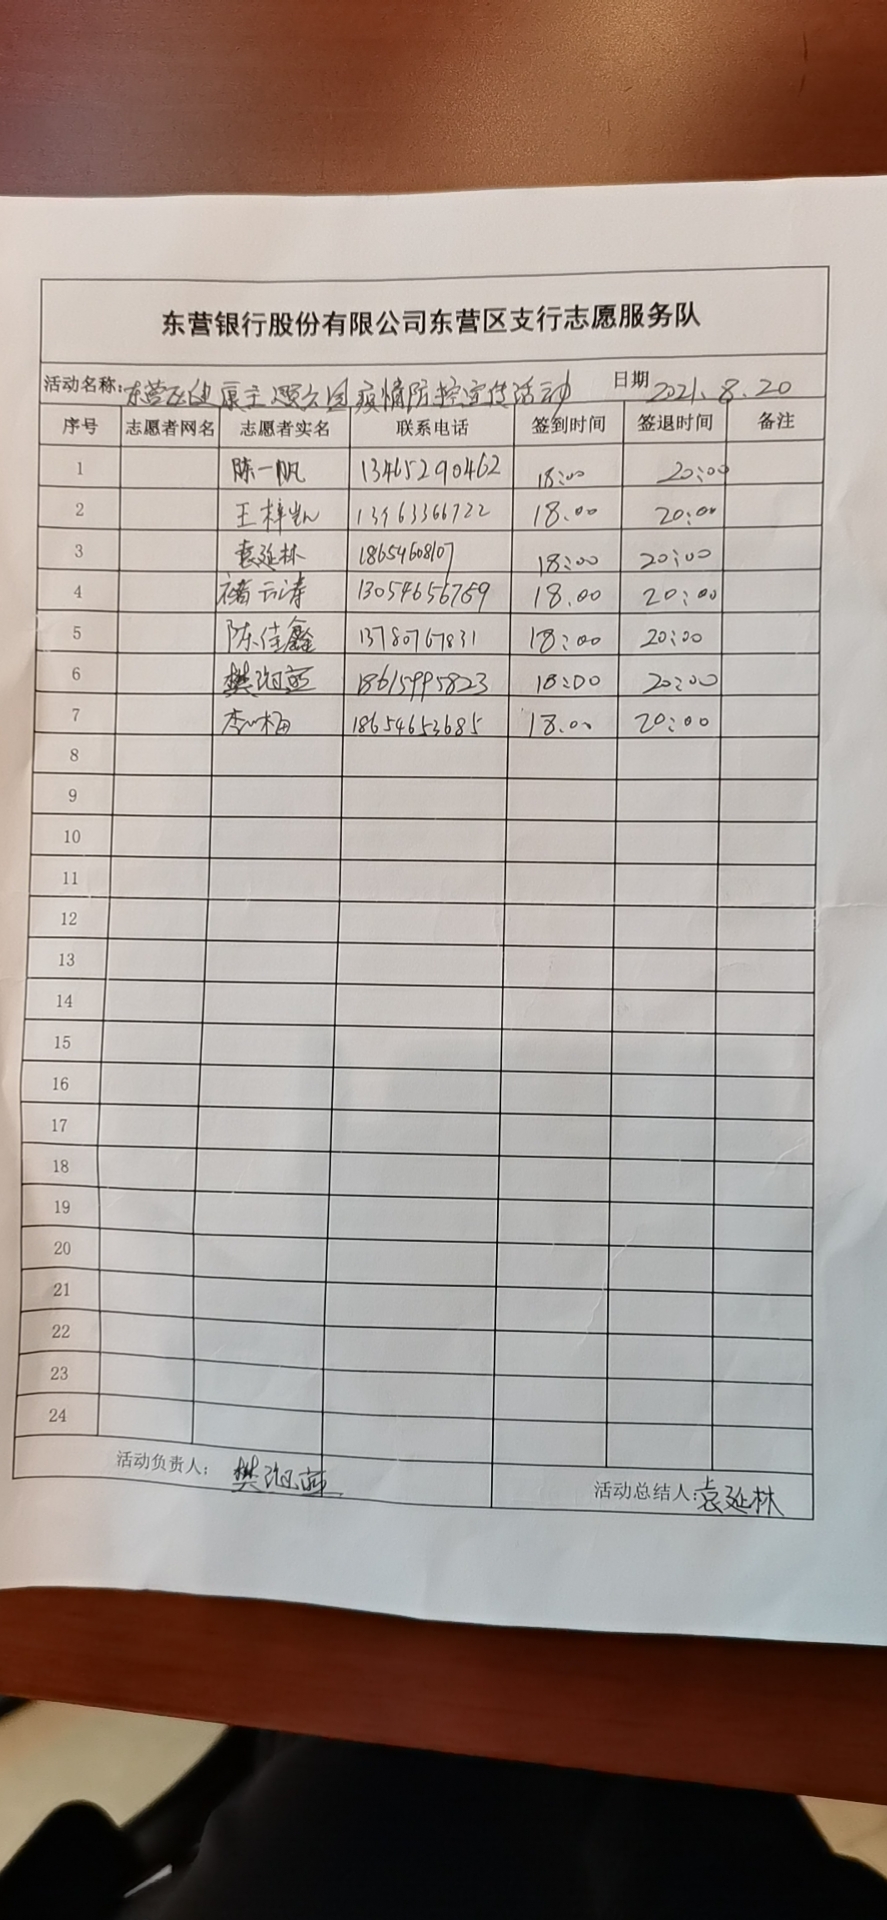 东营银行股份有限公司东营区支行志愿服务队
活动名称: 东营区健康主题公园疫情防控宣传活动 日期 2021.8.20
序号 志愿者网名 志愿者实名 联系电话 签到时间 签退时间 备注
1 陈一帆 13465290462 18:00 20:00
2 王梓凯 18.00 20:00
3 袁延林 18654608107 18:00 20:00
4 褚云涛 13054656769 18.00 20:00
5 陈佳鑫 13780767831 18:00 20:00
6 樊 18615995823 18:00 20:00
7 18654653685 18.00 20:00
8
9
10
11
12
13
14
15
16
17
18
19
20
21
22
23
24
活动负责人: 樊 活动总结人: 袁延林